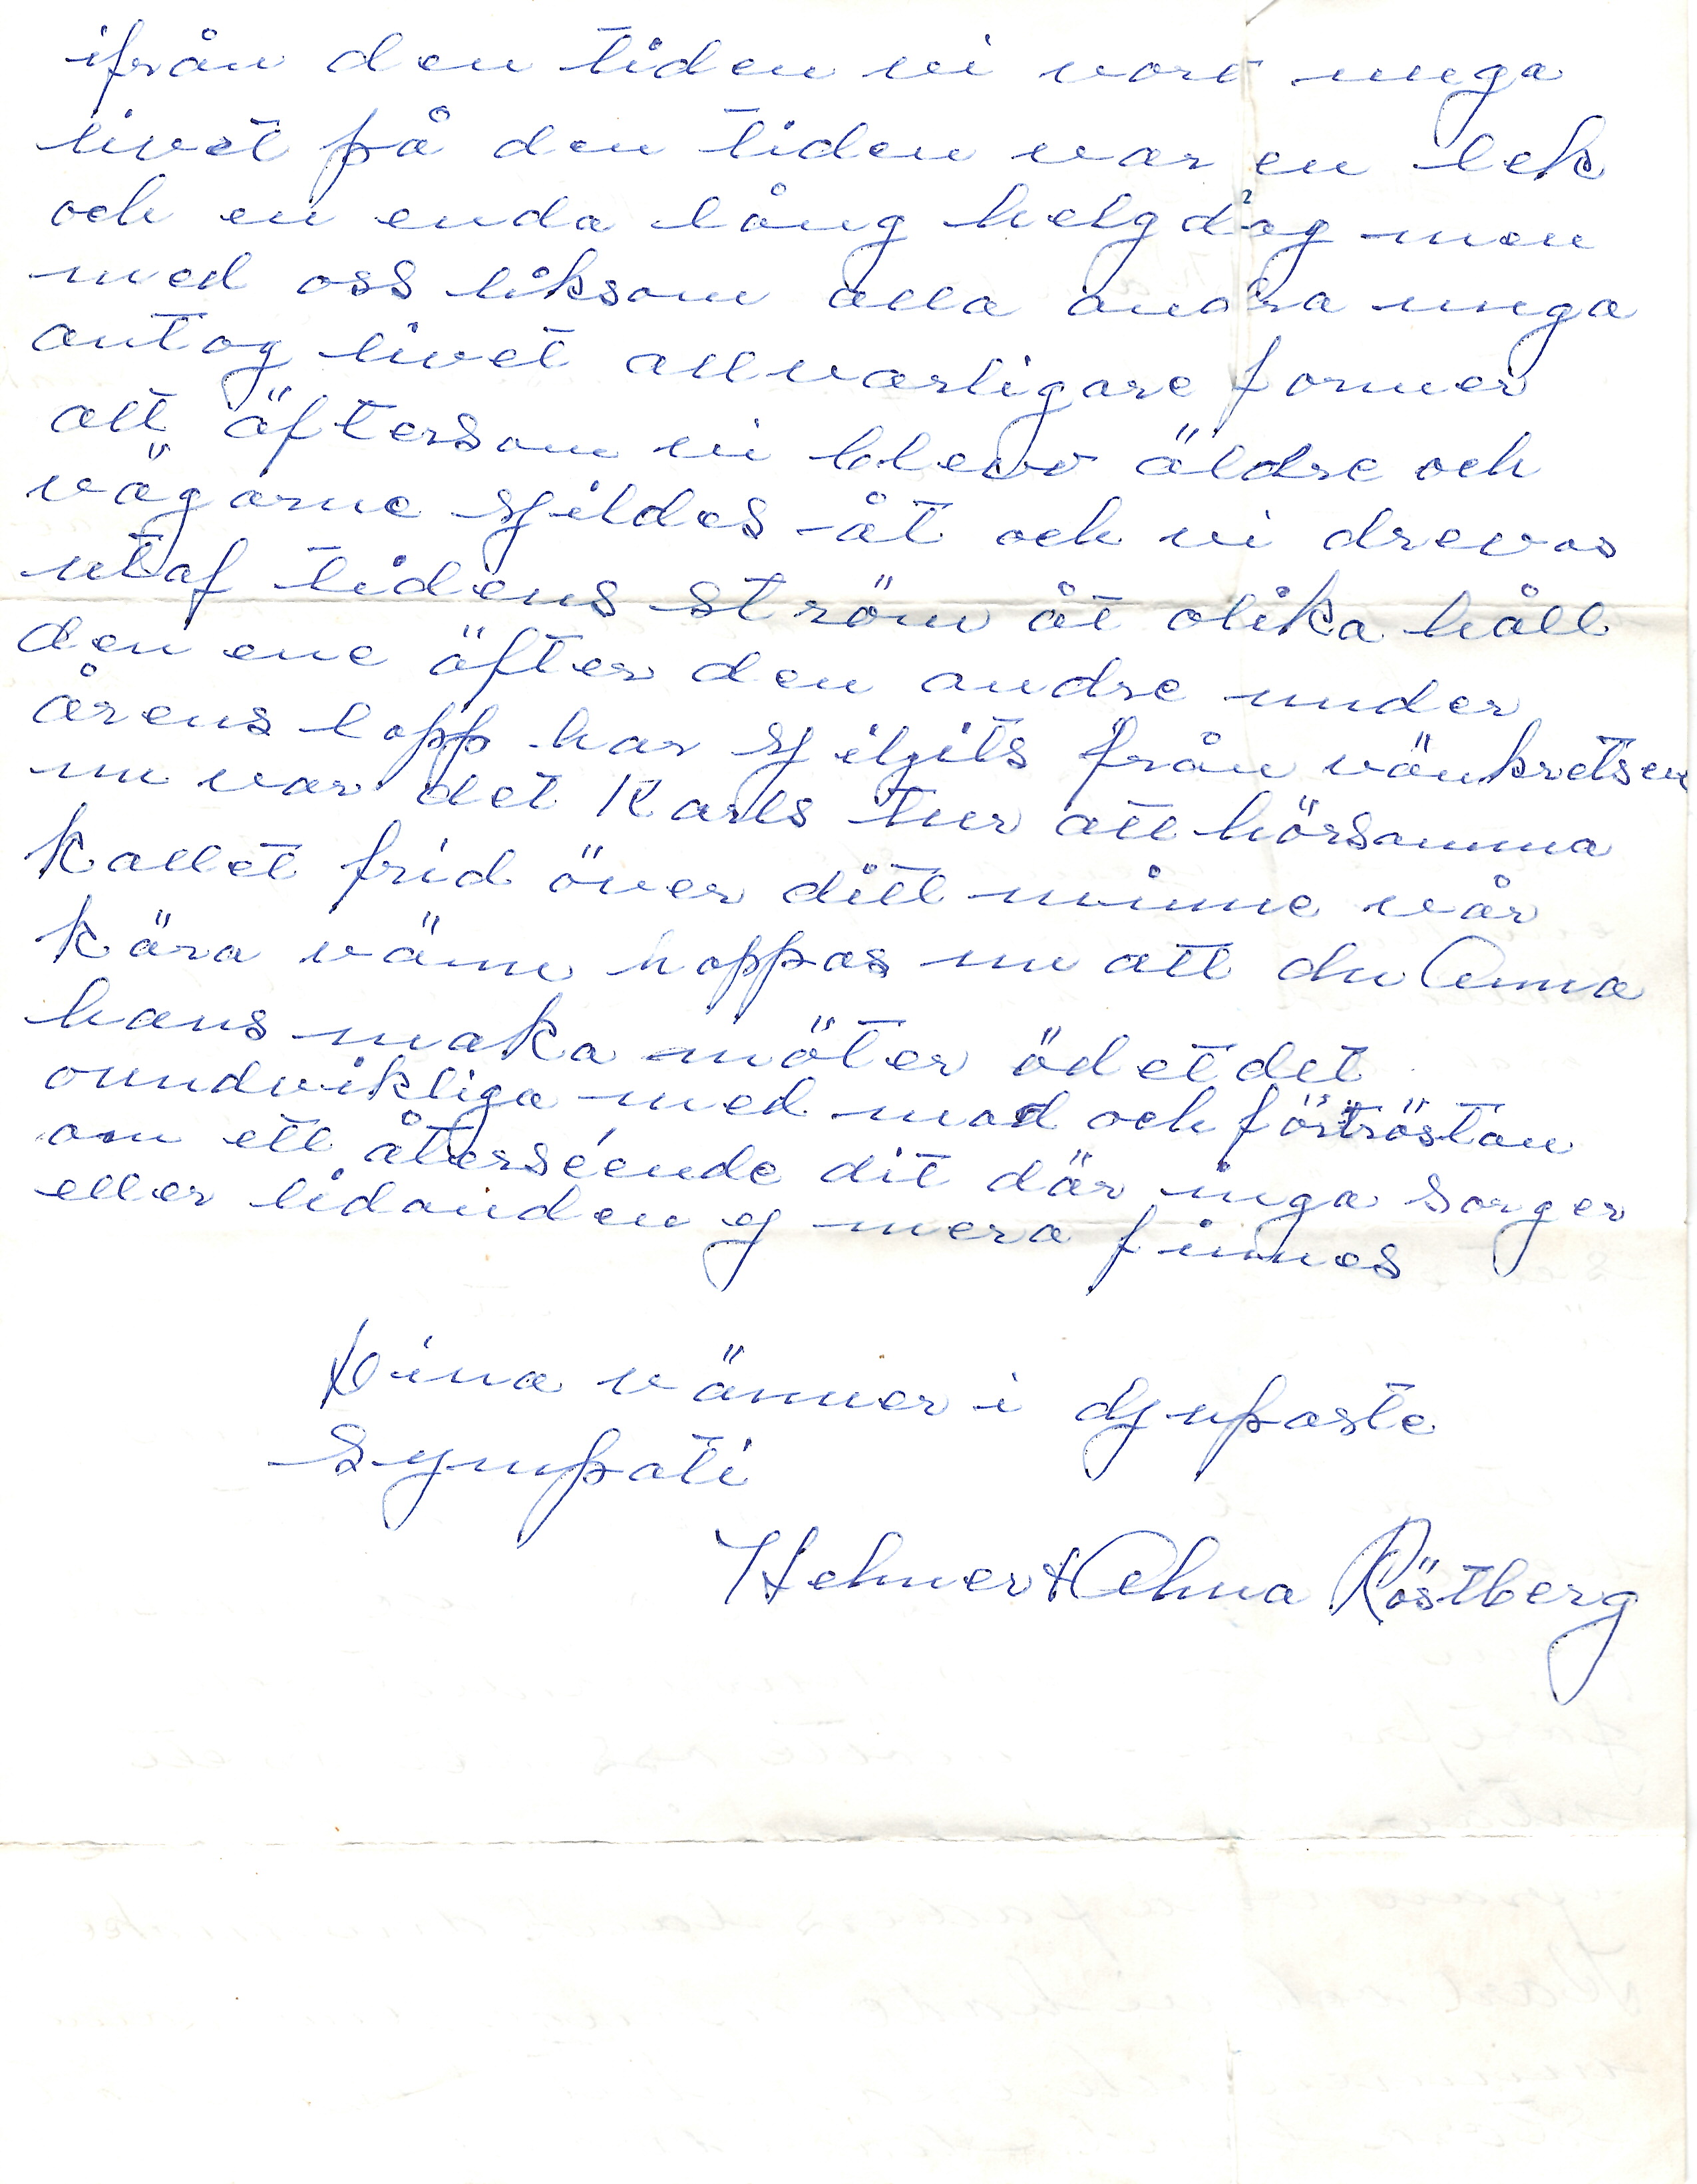 ifrån den tiden vi vore unga
livet på den tiden var en lek
och en enda lång helgdag men
med oss liksom alla andra unga
antog livet allvarligare former
alt äftersom vi blevo äldre och
vägarne sjildes åt och vi drevos
utaf tidens ström åt olika håll
den ene äfter den andre under
årens lopp har sjilgits från vänkretsen
nu var det Karls tur att hörsamma
kallet frid över ditt minne vår
kära vänn hoppas nu att du Anna
hans maka möter ödet det
oundvikliga med mod och förtröstan
om ett återséende dit där inga sorger
eller lidanden ej mera finnes
Dina vänner i djupaste
Sympati
Helmer & Alma Röstberg